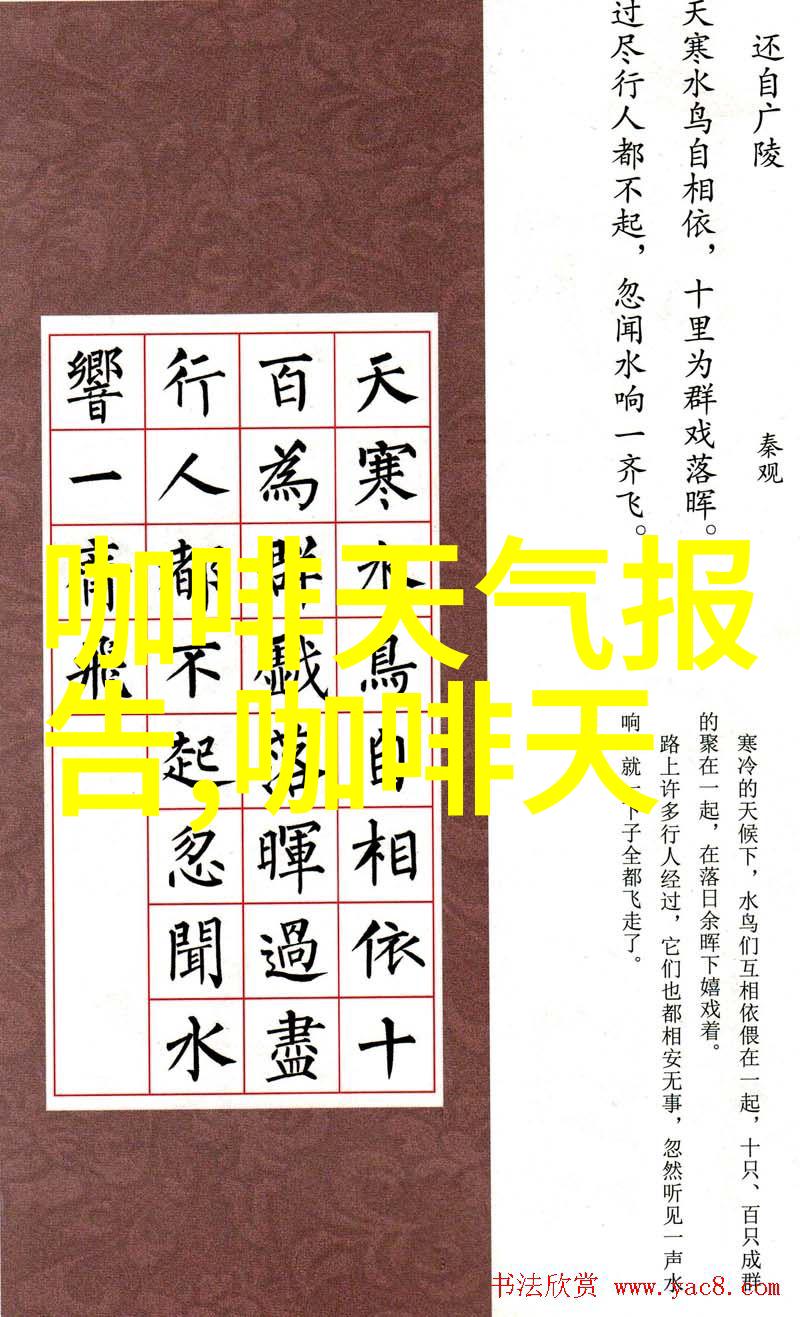 还自广陵
秦观
天寒水鸟自相依，十里为群戏落晖。
过尽行人都不起，忽闻水响一齐飞。
寒冷的天候下，水鸟们互相依偎在一起，十只、百只成群
的聚在一起，在落日余晖下嬉戏着。
路上许多行人经过，它们也都相安无事，忽然听见一声水
响 就一下子全都飞走了。
天寒水鳥自相依十
百為群戲落暉過盡
行人都不起忽聞水
響一齊飛
咖啡天气报
告,咖啡天
书法欣赏 www.yac8.com